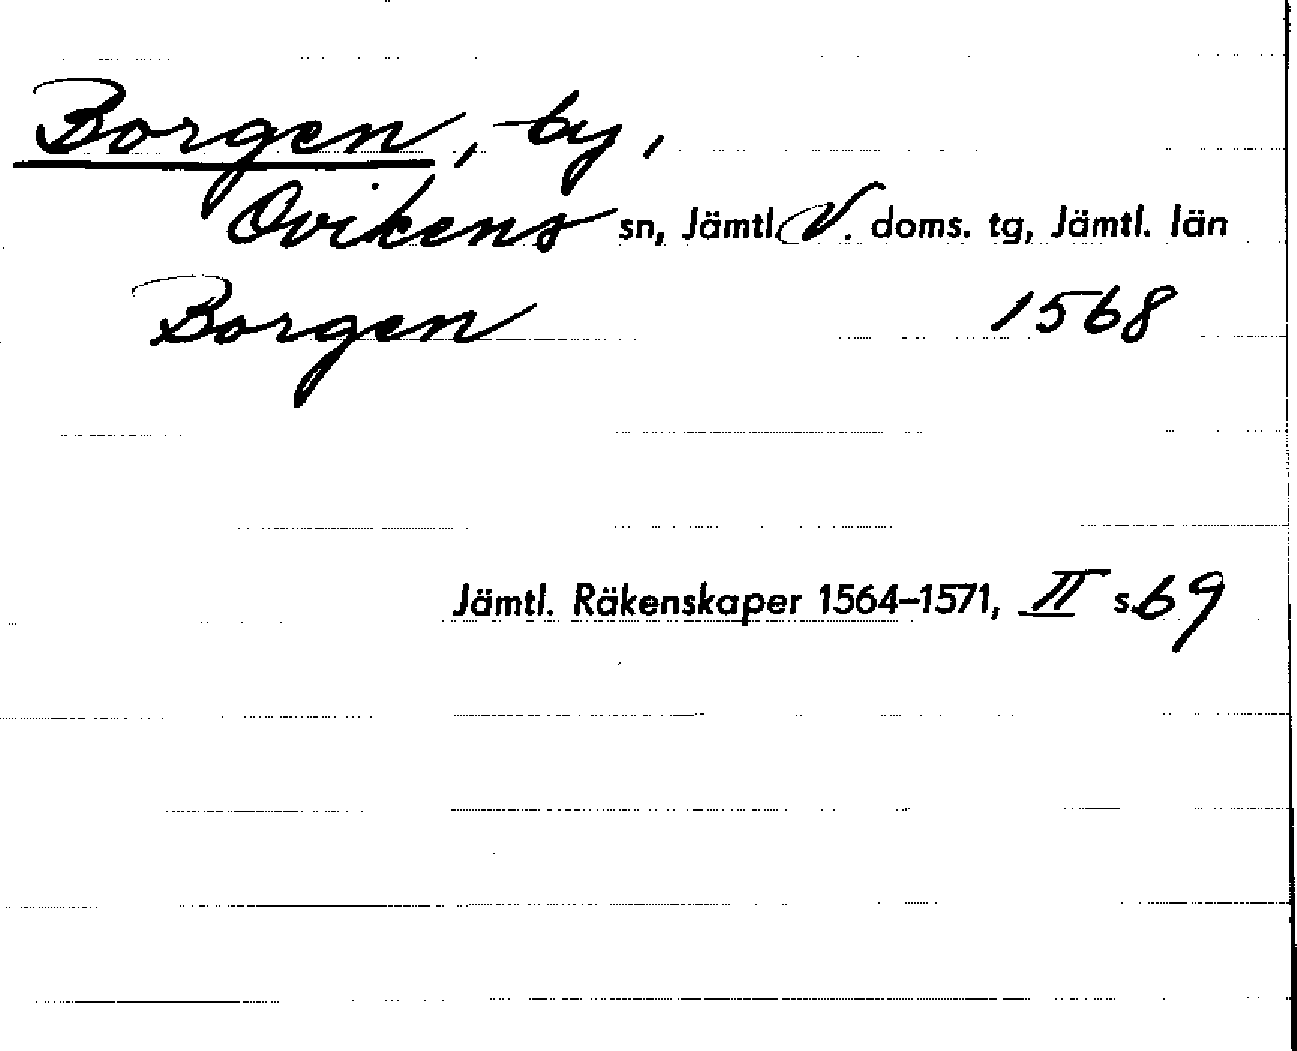 Borgen, by,
Ovikens sn, Jämtl. V. doms. tg, Jämtl. län
Borgen 1568
Jämtl. Räkenskaper 1564–1571, II s. 69